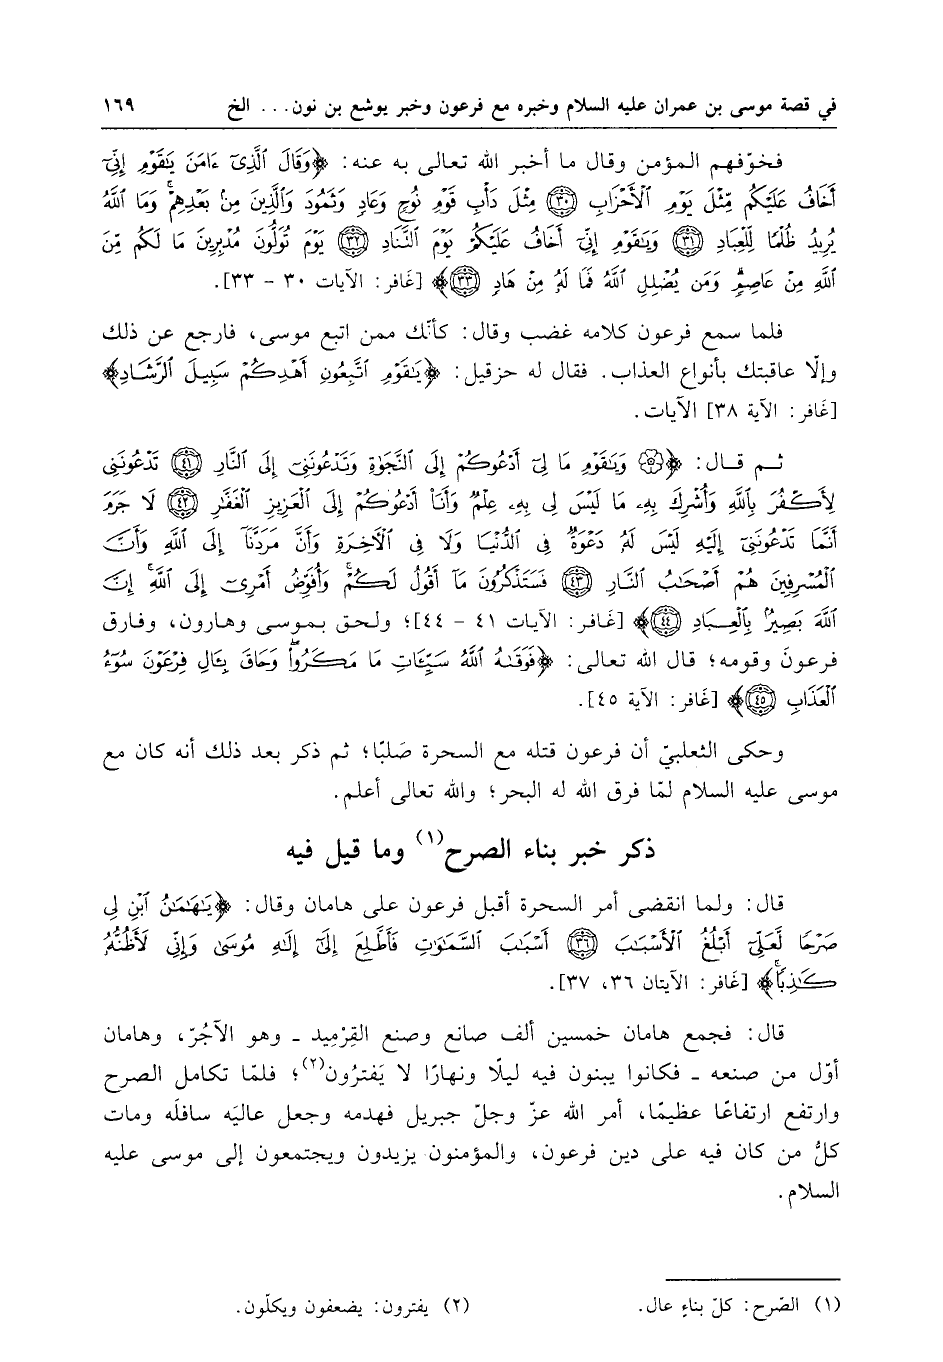 في قصة موسى بن عمران عليه السلام وخبره مع فرعون وخبر يوشع بن نون... الخ ١٦٩
فخوّفهم المؤمن وقال ما أخبر الله تعالى به عنه: ﴿وَقَالَ ٱلَّذِىٓ ءَامَنَ يَـٰقَوْمِ إِنِّىٓ
أَخَافُ عَلَيْكُم مِّثْلَ يَوْمِ ٱلْأَحْزَابِ ٣٠ مِثْلَ دَأْبِ قَوْمِ نُوحٍ وَعَادٍ وَثَمُودَ وَٱلَّذِينَ مِنۢ بَعْدِهِمْ ۚ وَمَا ٱللَّهُ
يُرِيدُ ظُلْمًا لِّلْعِبَادِ ٣١ وَيَـٰقَوْمِ إِنِّىٓ أَخَافُ عَلَيْكُمْ يَوْمَ ٱلتَّنَادِ ٣٢ يَوْمَ تُوَلُّونَ مُدْبِرِينَ مَا لَكُم مِّنَ
ٱللَّهِ مِنْ عَاصِمٍ ۗ وَمَن يُضْلِلِ ٱللَّهُ فَمَا لَهُۥ مِنْ هَادٍ ٣٣﴾ [غَافر: الآيات ٣٠ - ٣٣].
فلما سمع فرعون كلامه غضب وقال: كأنّك ممن اتبع موسى، فارجع عن ذلك
وإلّا عاقبتك بأنواع العذاب. فقال له حزقيل: ﴿يَـٰقَوْمِ ٱتَّبِعُونِ أَهْدِكُمْ سَبِيلَ ٱلرَّشَادِ﴾
[غَافر: الآية ٣٨] الآيات.
ثم قال: ﴿۞ وَيَـٰقَوْمِ مَا لِىٓ أَدْعُوكُمْ إِلَى ٱلنَّجَوٰةِ وَتَدْعُونَنِىٓ إِلَى ٱلنَّارِ ٤١ تَدْعُونَنِى
لِأَكْفُرَ بِٱللَّهِ وَأُشْرِكَ بِهِۦ مَا لَيْسَ لِى بِهِۦ عِلْمٌ وَأَنَا۠ أَدْعُوكُمْ إِلَى ٱلْعَزِيزِ ٱلْغَفَّـٰرِ ٤٢ لَا جَرَمَ
أَنَّمَا تَدْعُونَنِىٓ إِلَيْهِ لَيْسَ لَهُۥ دَعْوَةٌ فِى ٱلدُّنْيَا وَلَا فِى ٱلْـَٔاخِرَةِ وَأَنَّ مَرَدَّنَآ إِلَى ٱللَّهِ وَأَنَّ
ٱلْمُسْرِفِينَ هُمْ أَصْحَـٰبُ ٱلنَّارِ ٤٣ فَسَتَذْكُرُونَ مَآ أَقُولُ لَكُمْ ۚ وَأُفَوِّضُ أَمْرِىٓ إِلَى ٱللَّهِ ۚ إِنَّ
ٱللَّهَ بَصِيرٌۢ بِٱلْعِبَادِ ٤٤﴾ [غَافر: الآيات ٤١ - ٤٤]؛ ولحق بموسى وهارون، وفارق
فرعونَ وقومه؛ قال الله تعالى: ﴿فَوَقَىٰهُ ٱللَّهُ سَيِّـَٔاتِ مَا مَكَرُوا۟ ۖ وَحَاقَ بِـَٔالِ فِرْعَوْنَ سُوٓءُ
ٱلْعَذَابِ ٤٥﴾ [غَافر: الآية ٤٥].
وحكى الثعلبيّ أن فرعون قتله مع السحرة صَلبًا؛ ثم ذكر بعد ذلك أنه كان مع
موسى عليه السلام لمّا فرق الله له البحر؛ والله تعالى أعلم.
ذكر خبر بناء الصرح(١) وما قيل فيه
قال: ولما انقضى أمر السحرة أقبل فرعون على هامان وقال: ﴿يَـٰهَـٰمَـٰنُ ٱبْنِ لِى
صَرْحًا لَّعَلِّىٓ أَبْلُغُ ٱلْأَسْبَـٰبَ ٣٦ أَسْبَـٰبَ ٱلسَّمَـٰوَٰتِ فَأَطَّلِعَ إِلَىٰٓ إِلَـٰهِ مُوسَىٰ وَإِنِّى لَأَظُنُّهُۥ
كَـٰذِبًا ۚ﴾ [غَافر: الآيتان ٣٦، ٣٧].
قال: فجمع هامان خمسين ألف صانع وصنع القِرْميد ـ وهو الآجُرّ، وهامان
أوّل من صنعه ـ فكانوا يبنون فيه ليلًا ونهارًا لا يَفترُون(٢)؛ فلمّا تكامل الصرح
وارتفع ارتفاعًا عظيمًا، أمر الله عزّ وجلّ جبريل فهدمه وجعل عاليَه سافلَه ومات
كلُّ من كان فيه على دين فرعون، والمؤمنون يزيدون ويجتمعون إلى موسى عليه
السلام.
(١) الصّرح: كلّ بناءٍ عال.
(٢) يفترون: يضعفون ويكلّون.